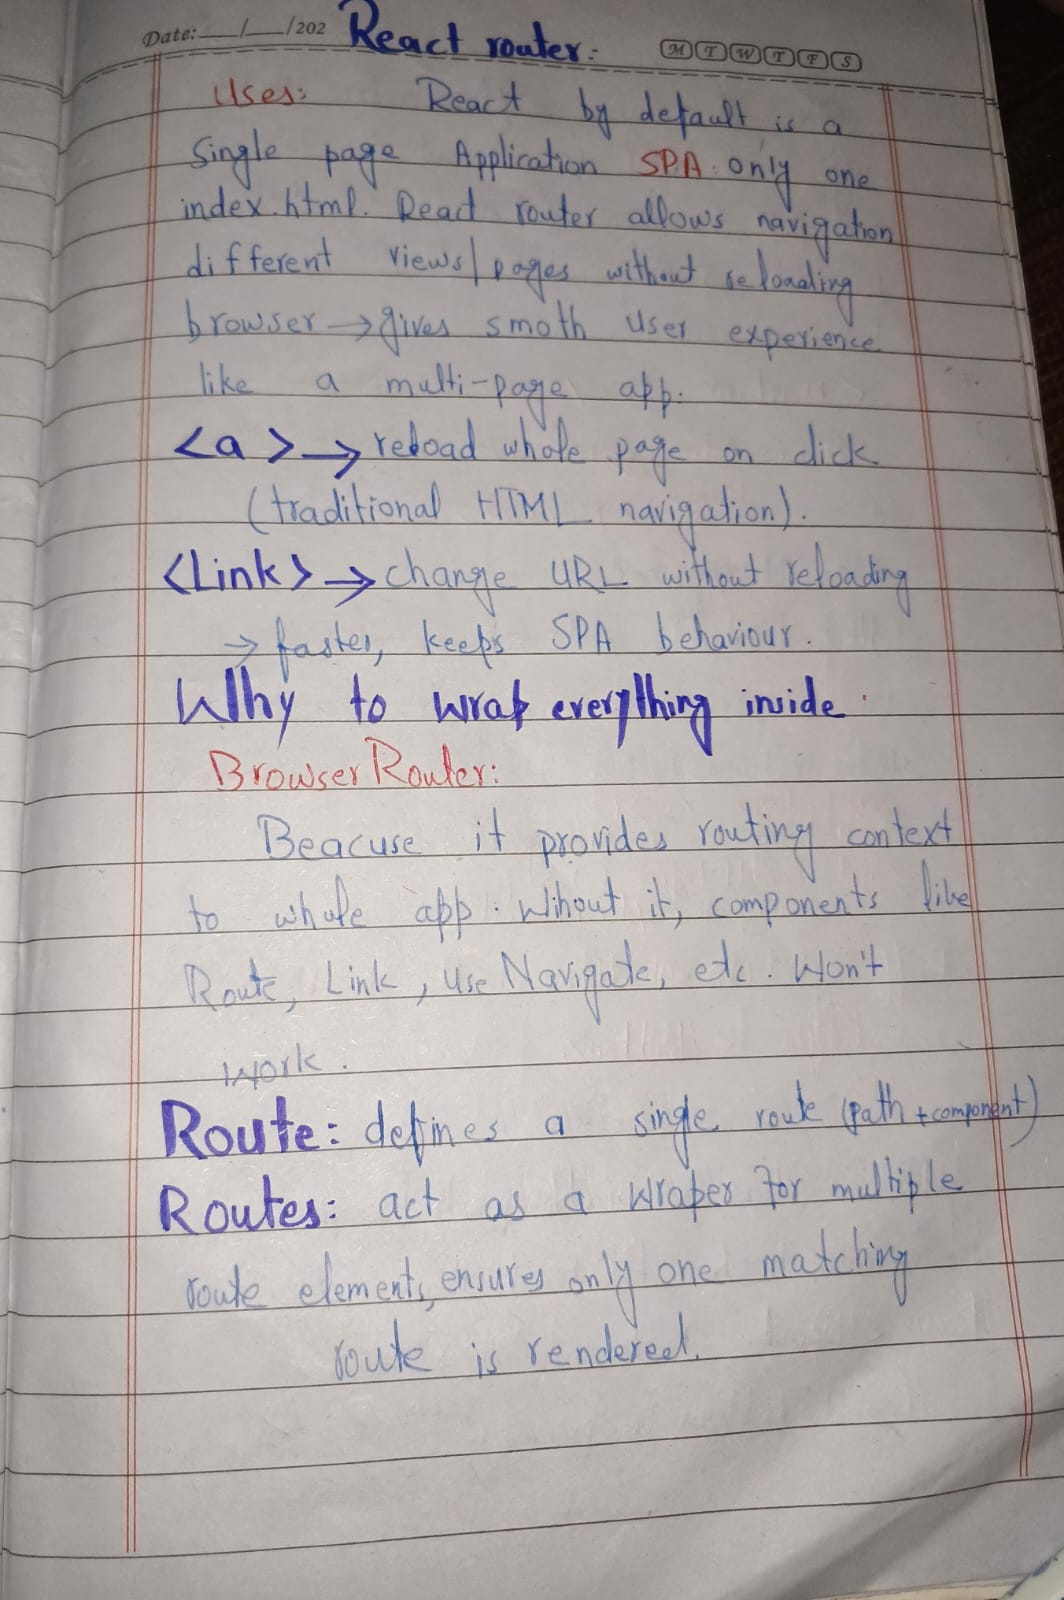 Date:___/___/202 React router: M T W T F S
Uses: React by default is a
Single page Application SPA. only one
index.html. React router allows navigation
different views/pages without reloading
browser → gives smoth user experience
like a multi-page app.
<a> → reload whole page on click
(traditional HTML navigation).
<Link> → change URL without reloading
→ faster, keeps SPA behaviour.
Why to wrap everything inside
BrowserRouter:
Beacuse it provides routing context
to whole app. Wihout it, components like
Route, Link, useNavigate, etc. Won't
work.
Route: defines a single route (path + component)
Routes: act as a wraper for multiple
route elements, ensures only one matching
route is rendered.